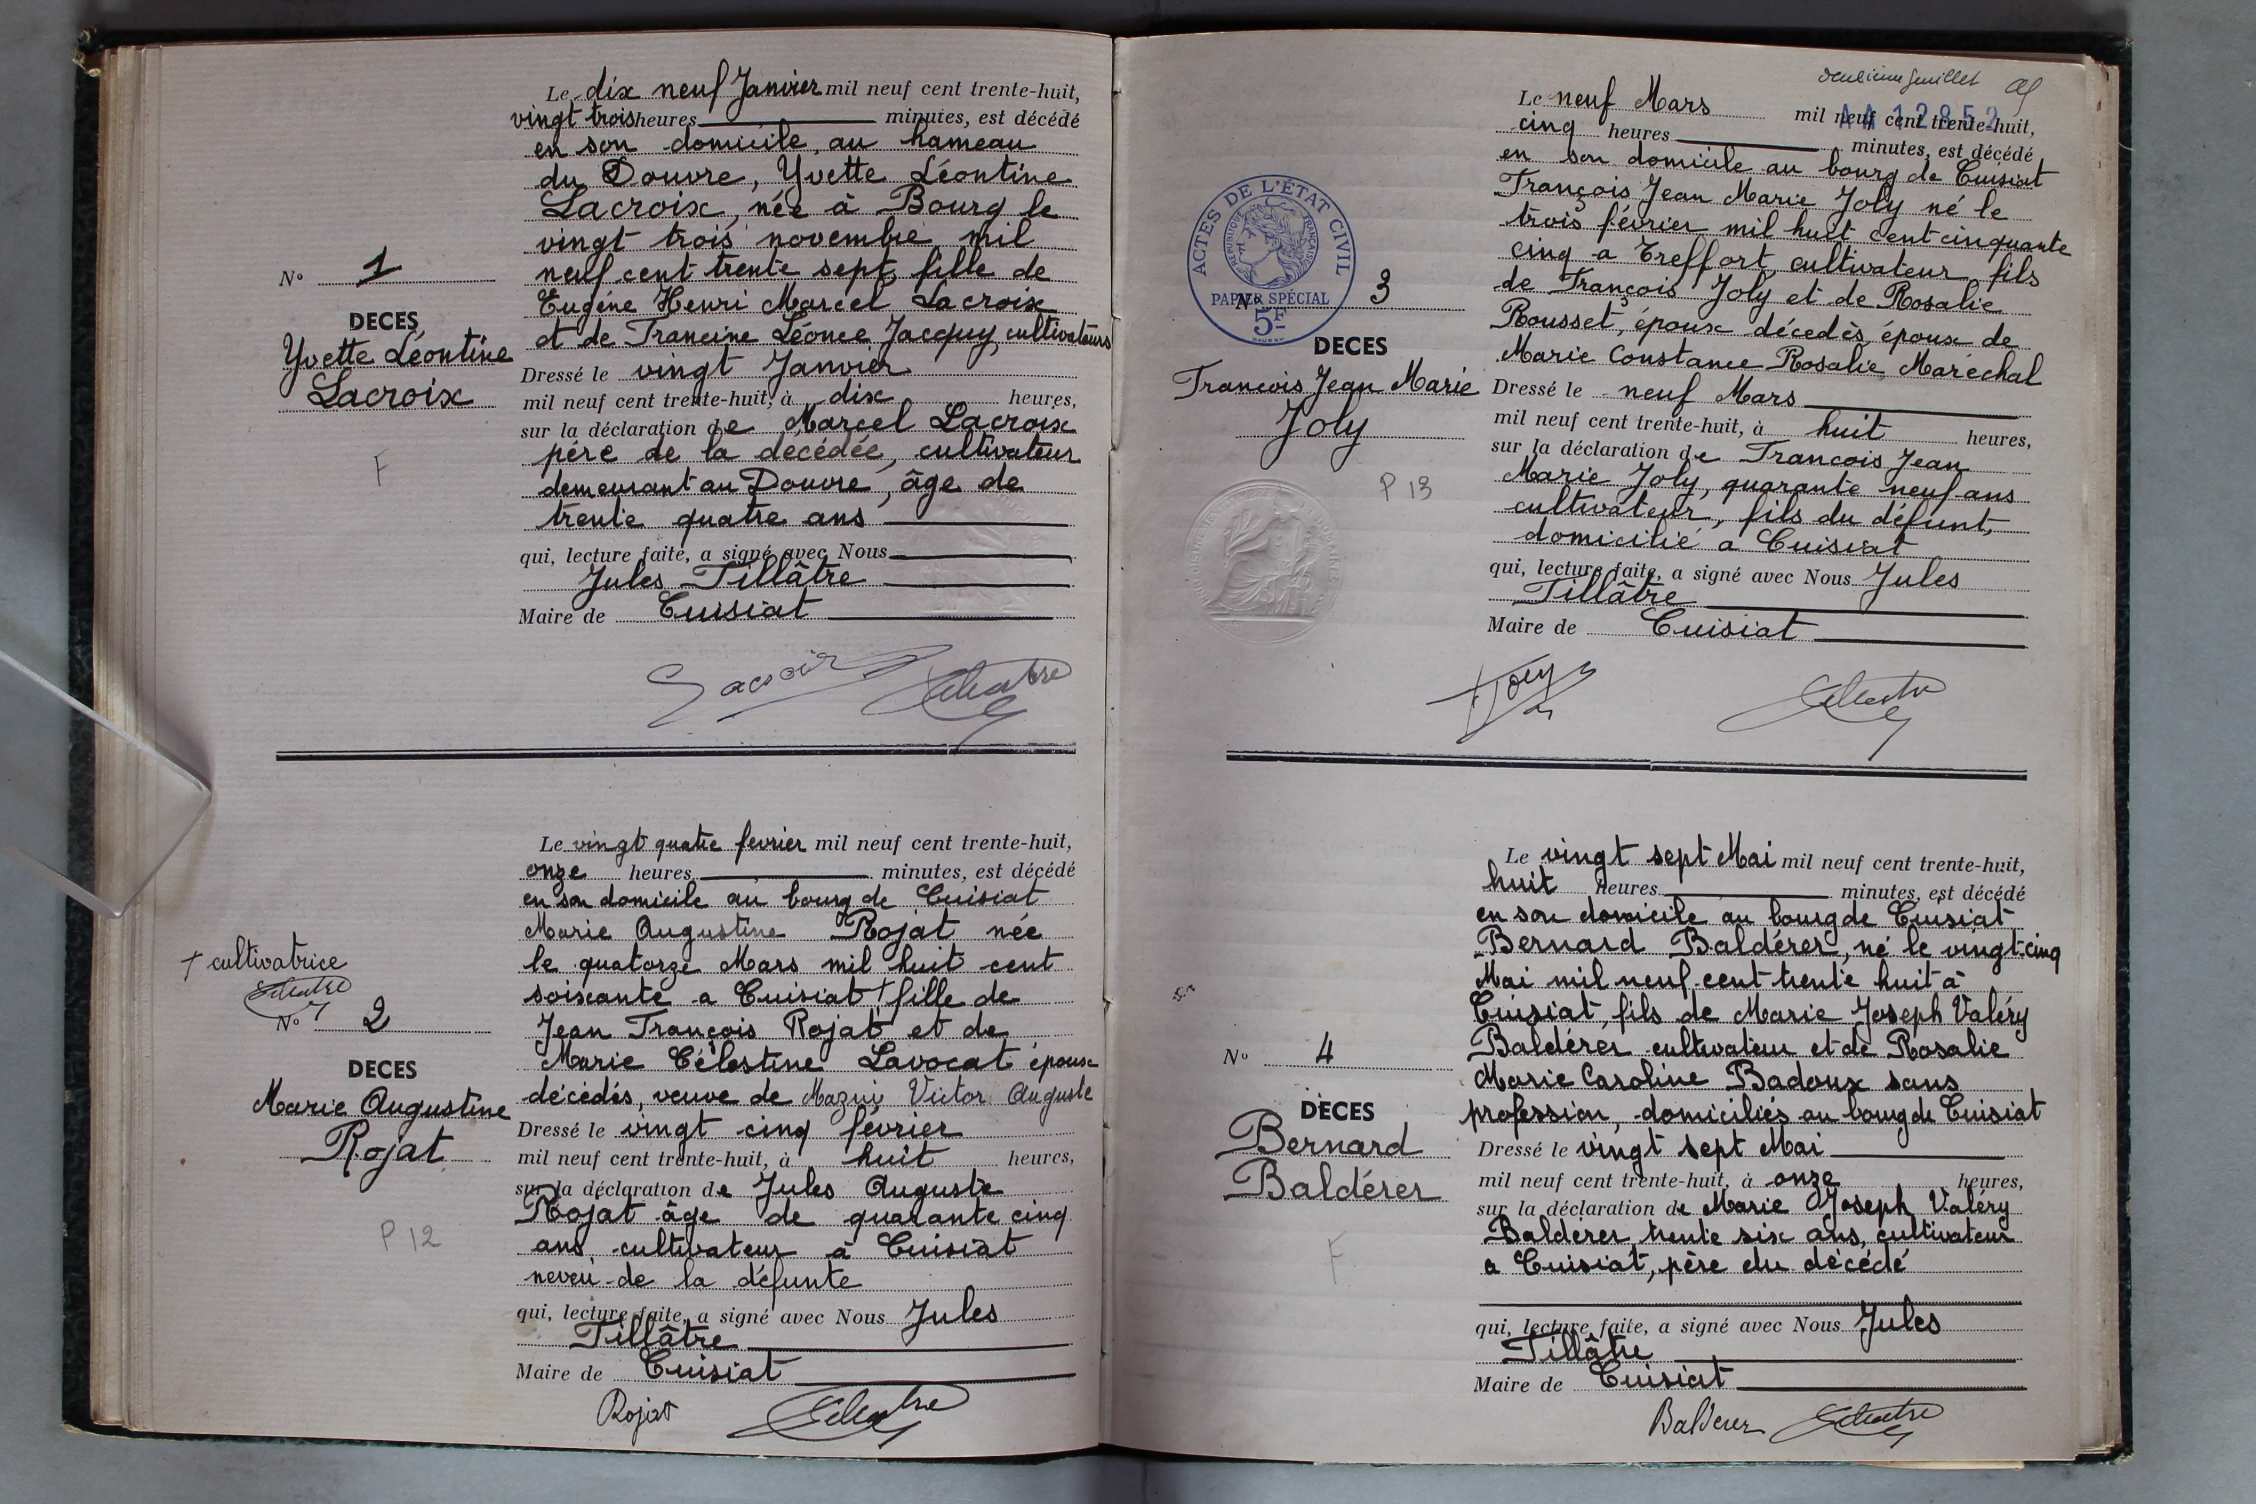 Le dix neuf Janvier mil neuf cent trente-huit,
vingt trois heures minutes, est décédé
en son domicile, au hameau
du Douvre, Yvette Léontine
Lacroix, née à Bourg le
vingt trois novembre mil
neuf cent trente sept, fille de
Eugène Henri Marcel Lacroix
et de Francine Léonce Jacquy, cultivateurs
Dressé le vingt Janvier
mil neuf cent trente-huit, à dix heures,
sur la déclaration de Marcel Lacroix
père de la décédée, cultivateur
demeurant au Douvre, âge de
trente quatre ans
qui, lecture faite, a signé avec Nous
Jules Tillâtre
Maire de Cuisiat
N° 1
DECES
Yvette Léontine
Lacroix
F
Lacroix Tillatre
Le vingt quatre fevrier mil neuf cent trente-huit,
onze heures minutes, est décédé
en son domicile au bourg de Cuisiat
Marie Augustine Rojat née
le quatorze Mars mil huit cent
soixante a Cuisiat + fille de
Jean François Rojat et de
Marie Célestine Lavocat époux
décédés, veuve de Mazuy Victor Auguste
Dressé le vingt cinq février
mil neuf cent trente-huit, à huit heures,
sur la déclaration de Jules Auguste
Rojat âge de quarante cinq
ans cultivateur à Cuisiat
neveu de la défunte
qui, lecture faite, a signé avec Nous Jules
Tillâtre
Maire de Cuisiat
+ cultivatrice
Tillatre
N° 2
DECES
Marie Augustine
Rojat
P 12
Rojat Tillatre
deuxième feuillet
AA 12852
Le neuf Mars mil neuf cent trente-huit,
cinq heures minutes, est décédé
en son domicile au bourg de Cuisiat
François Jean Marie Joly né le
trois février mil huit cent cinquante
cinq a Treffort, cultivateur, fils
de François Joly et de Rosalie
Rousset, époux décedés, époux de
Marie Constance Rosalie Maréchal
Dressé le neuf Mars
mil neuf cent trente-huit, à huit heures,
sur la déclaration de Francois Jean
Marie Joly, quarante neuf ans
cultivateur, fils du défunt,
domicilié a Cuisiat
qui, lecture faite, a signé avec Nous Jules
Tillâtre
Maire de Cuisiat
ACTES DE L'ÉTAT CIVIL
REPUBLIQUE FRANÇAISE
PAPIER SPÉCIAL
5F
N° 3
DECES
Francois Jean Marie
Joly
P 13
Joly Tillatre
Le vingt sept Mai mil neuf cent trente-huit,
huit heures minutes, est décédé
en son domicile au bourg de Cuisiat
Bernard Baldérer, né le vingt-cinq
Mai mil neuf cent trente huit à
Cuisiat, fils de Marie Joseph Valéry
Baldérer cultivateur et de Rosalie
Marie Caroline Badoux sans
profession, domiciliés au bourg de Cuisiat
Dressé le vingt sept Mai
mil neuf cent trente-huit, à onze heures,
sur la déclaration de Marie Joseph Valéry
Balderer trente six ans, cultivateur
a Cuisiat, père du décédé
qui, lecture faite, a signé avec Nous Jules
Tillâtre
Maire de Cuisiat
N° 4
DECES
Bernard
Baldérer
F
Balderer Tillatre